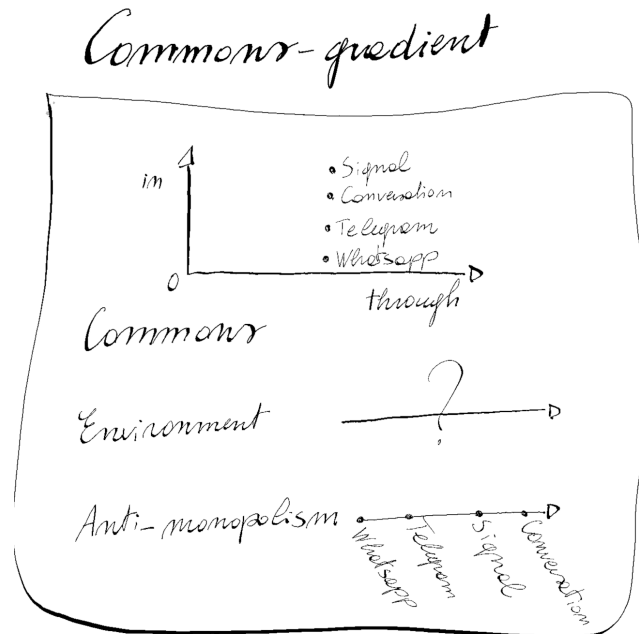 Commons-gradient
in
Signal
Conversation
Telegram
Whatsapp
0
through
Commons
Environment
?
Anti-monopolism
Whatsapp
Telegram
Signal
Conversation